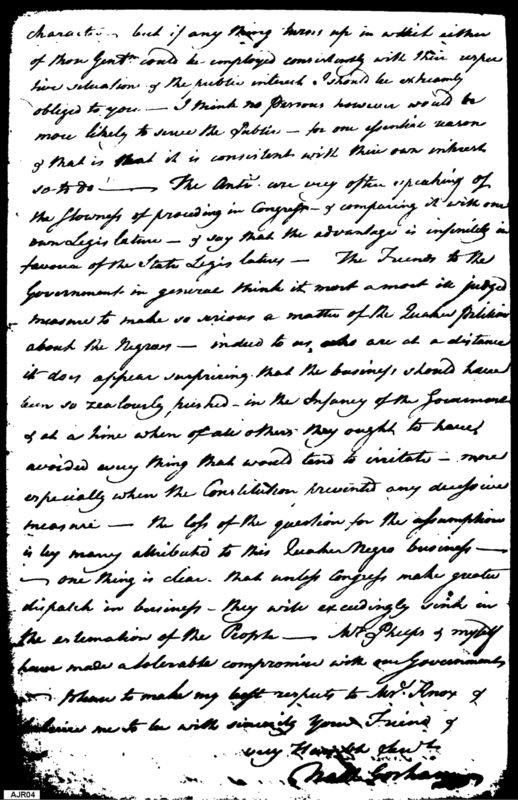 character – but if any thing turns up in which either
of those Gentn. could be employed consistently with their respec
tive situation & the public interest I should be extreemly
obliged to you — I think no Persons however would be
more likely to serve the Public – for one essential reason
& that is that it is consistent with their own interest
so to do — The Anti. are very often speaking of
the slowness of proceding in Congress – & comparing it with our
own Legislature – & say that the advantage is infinitely in
favour of the State Legislatures – The Friends to the
Government in general think it most a most ill judged
measure to make so serious a matter of the Quaker Petition
about the Negroes – indeed to us who are at a distance
it does appear surprizing that the business should have
been so zealously pushed – in the Infancy of the Government
& at a time when of all others they ought to have
avoided every thing that would tend to irritate – more
especially when the Constitution prevented any decissive
measure — the loss of the question for the assumption
is by many attributed to this Quaker Negro business —
— one thing is clear. that unless Congress make greater
dispatch in business – they will exceedingly sink in
the estemation of the People — Mr. Phelps & myself
have made a tolerable compromise with our Government
– Please to make my best respects to Mr. Knox &
believe me to be with sincerity your Friend &
very Humble Servt
Nathl Gorham
AJR04